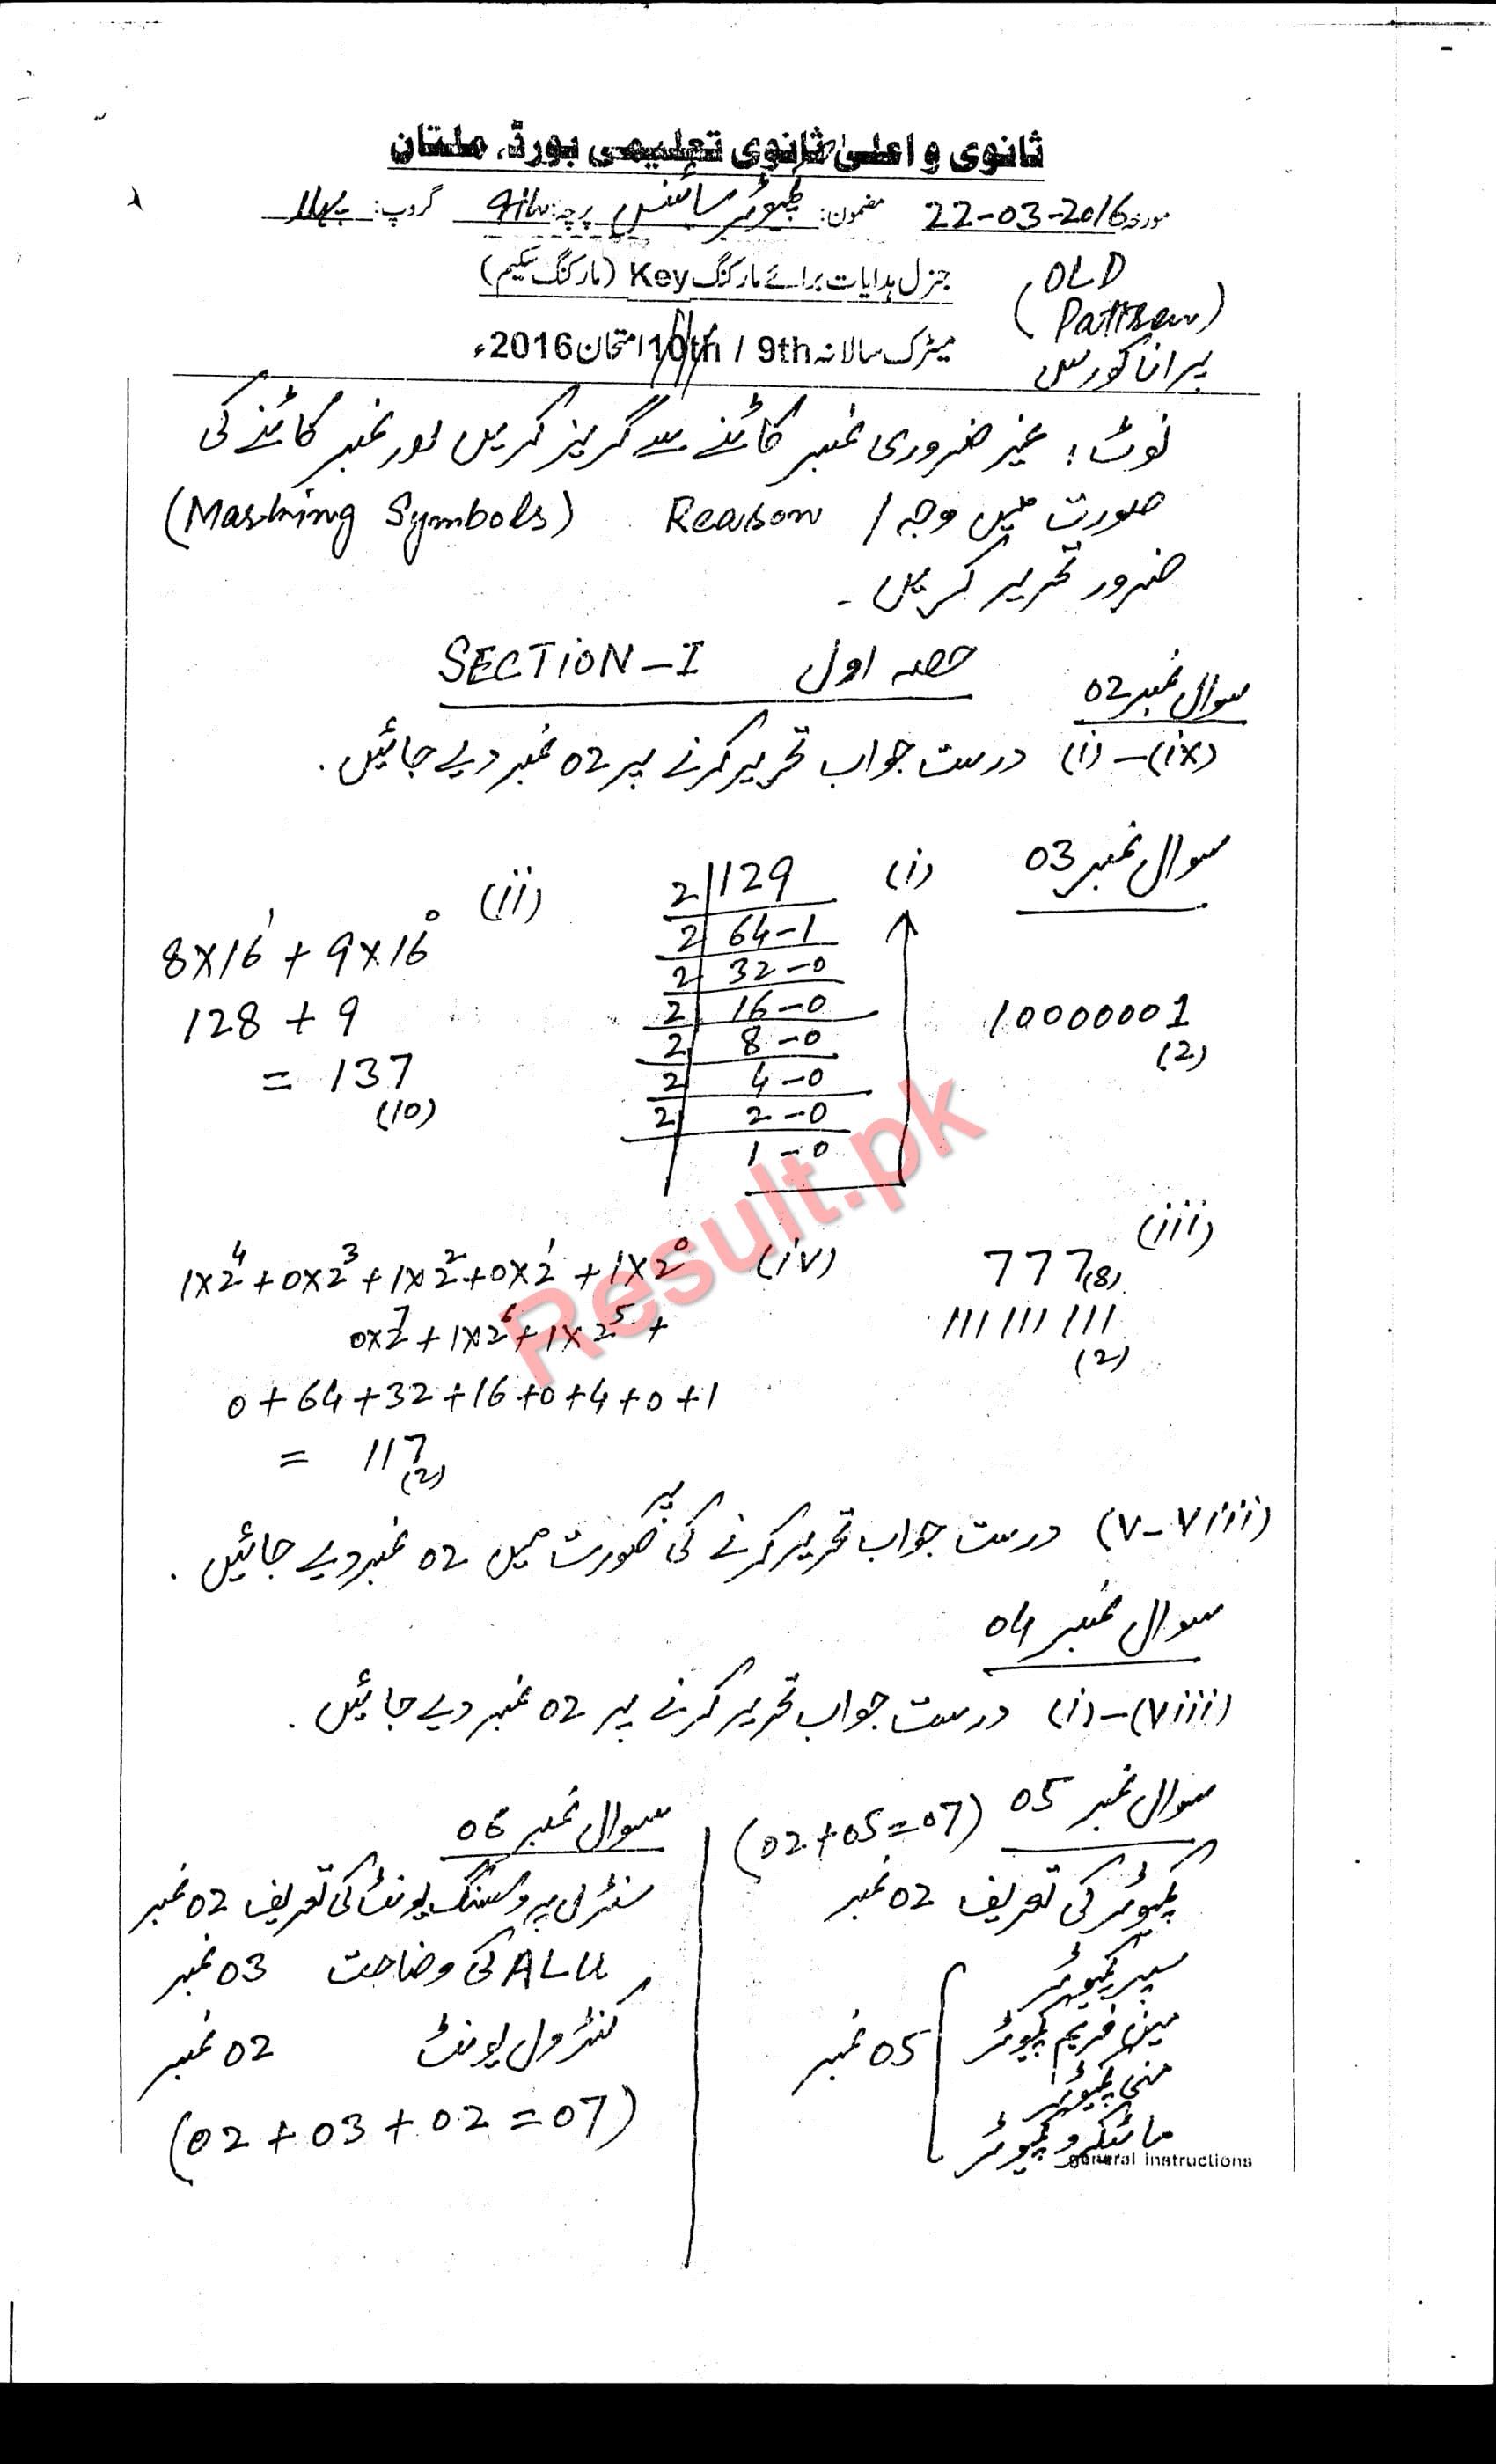 ثانوی و اعلیٰ ثانوی تعلیمی بورڈ، ملتان
مورخہ 22-03-2016 مضمون: کمپیوٹر سائنس پرچہ: 9th گروپ: پہلا
جنرل ہدایات برائے مارکنگ Key (مارکنگ سکیم)
(OLD
Pattern)
میٹرک سالانہ 9th / 10th امتحان 2016ء
پرانا کورس
نوٹ: غیر ضروری نمبر کاٹنے سے گریز کریں اور نمبر کاٹنے کی
صورت میں وجہ / Reason (Marking Symbols)
ضرور تحریر کریں۔
حصہ اول SECTION-I
سوال نمبر 02
(i)-(ix) درست جواب تحریر کرنے پر 02 نمبر دیے جائیں.
سوال نمبر 03
(i)
2 129
2 64-1
2 32-0
2 16-0
2 8-0
2 4-0
2 2-0
1-0
10000001
(2)
(ii)
8x16¹ + 9x16⁰
128 + 9
= 137
(10)
(iii)
777(8)
111 111 111
(2)
(iv)
1x2⁴+0x2³+1x2²+0x2¹+1x2⁰
0x2⁷+1x2⁶+1x2⁵+
0+64+32+16+0+4+0+1
= 117
(2)
(v-viii) درست جواب تحریر کرنے کی صورت میں پر 02 نمبر دیے جائیں.
سوال نمبر 04
(i)-(viii) درست جواب تحریر کرنے پر 02 نمبر دیے جائیں.
سوال نمبر 05 (02+05=07)
کمپیوٹر کی تعریف 02 نمبر
سپر کمپیوٹر
مین فریم کمپیوٹر
منی کمپیوٹر
مائیکرو کمپیوٹر
05 نمبر
سوال نمبر 06
سنٹرل پروسیسنگ یونٹ کی تعریف 02 نمبر
ALU کی وضاحت 03 نمبر
کنٹرول یونٹ 02 نمبر
(02+03+02=07)
general instructions
Result.pk